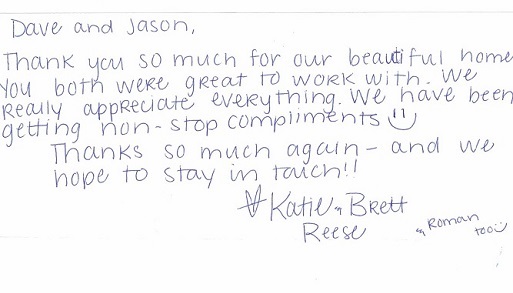 Dave and Jason,
Thank you so much for our beautiful home
You both were great to work with. We
really appreciate everything. We have been
getting non-stop compliments
Thanks so much again - and we
hope to stay in touch!!
Katie & Brett
Reese
& Roman
too